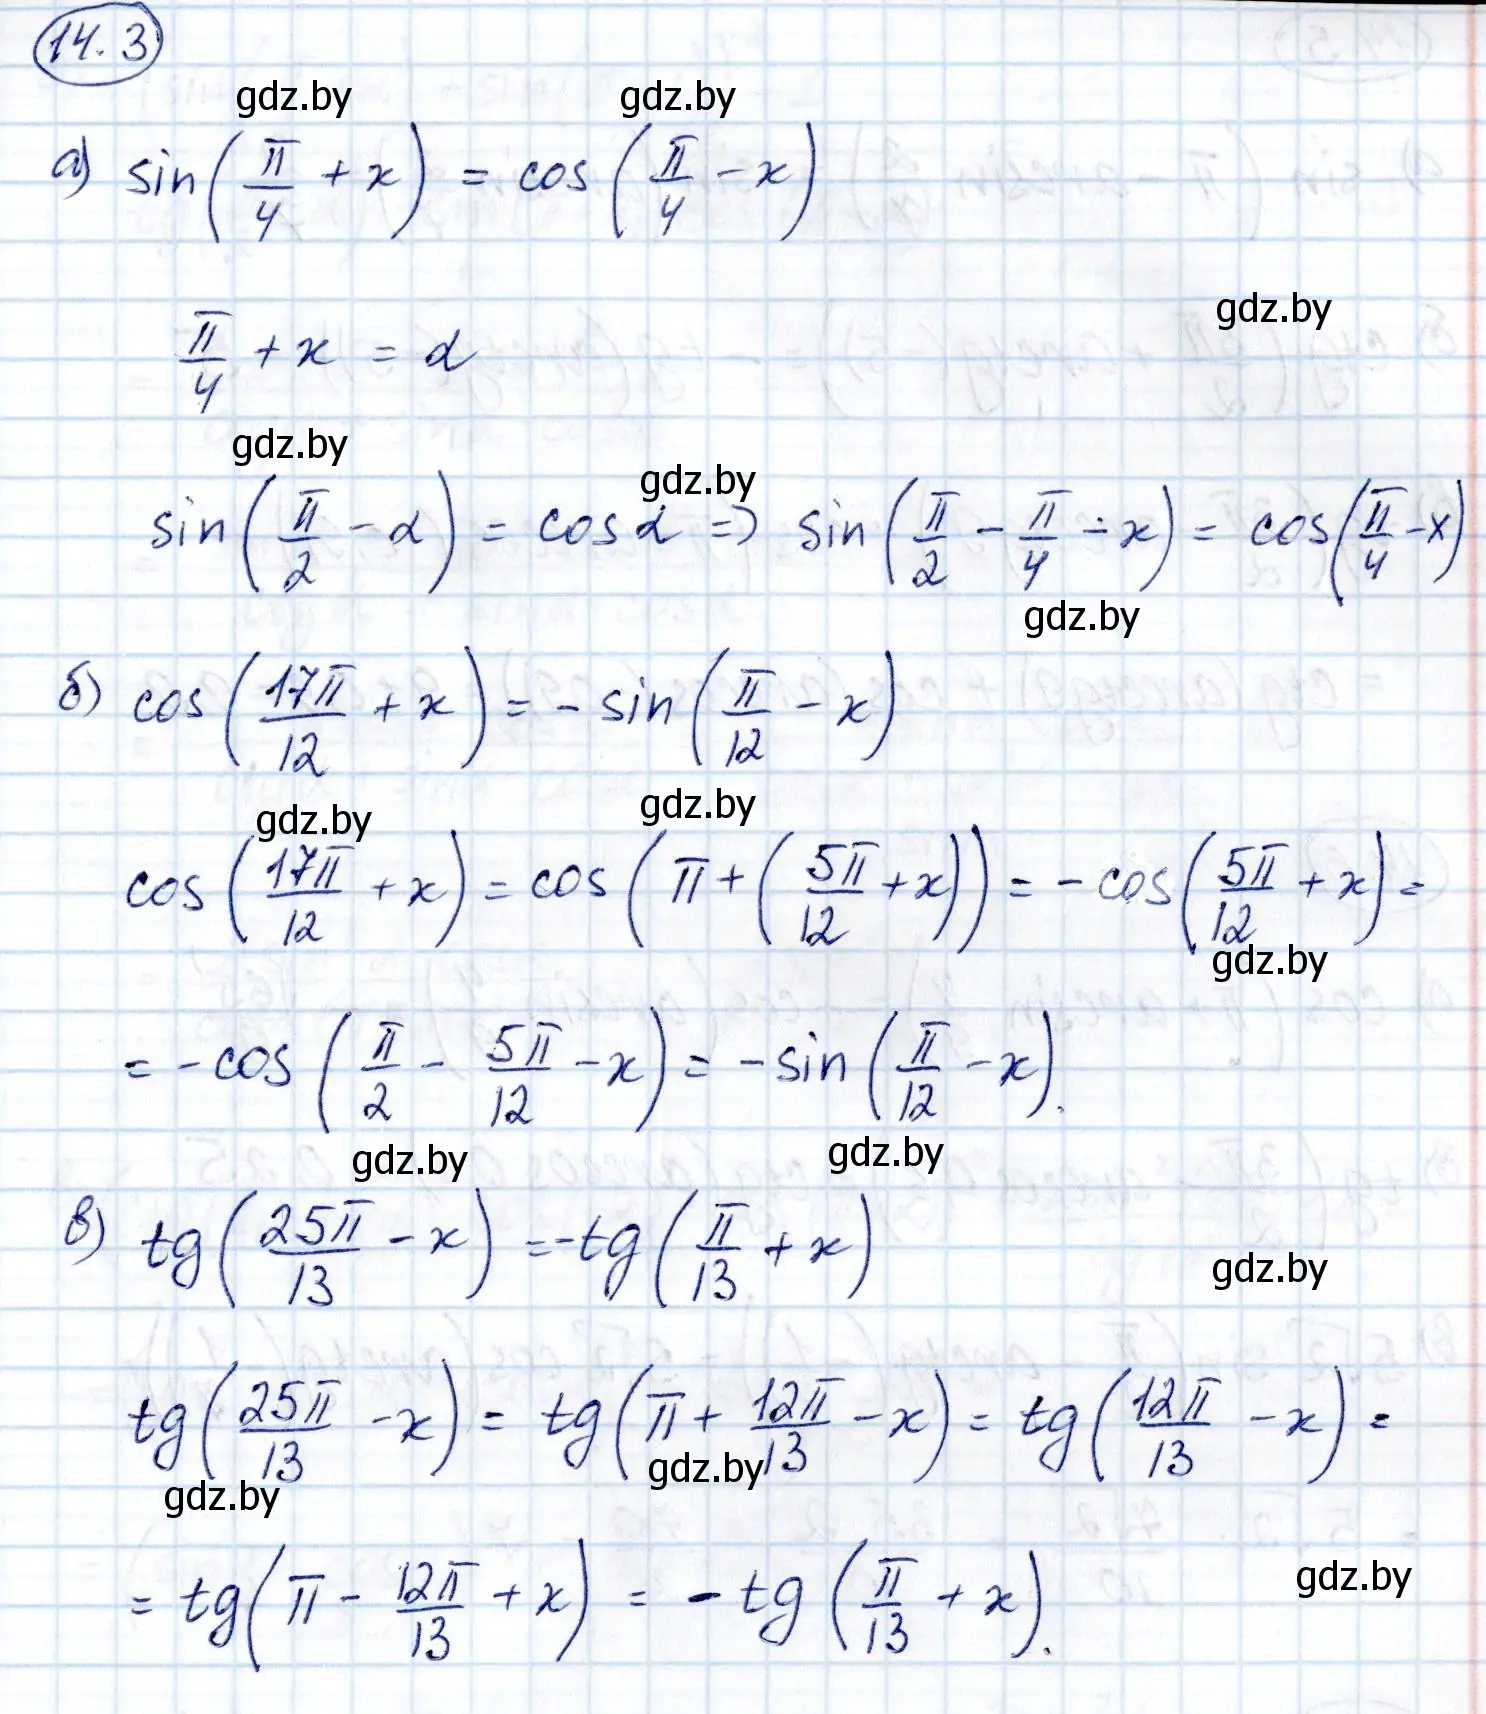 14.3
gdz.by gdz.by
а) sin(π/4 + x) = cos(π/4 - x)
gdz.by
π/4 + x = α
gdz.by gdz.by
sin(π/2 - α) = cos α => sin(π/2 - π/4 - x) = cos(π/4 - x)
gdz.by
б) cos(17π/12 + x) = - sin(π/12 - x)
gdz.by gdz.by
cos(17π/12 + x) = cos(π + (5π/12 + x)) = - cos(5π/12 + x) =
gdz.by
= - cos(π/2 - 5π/12 - x) = - sin(π/12 - x).
gdz.by gdz.by
в) tg(25π/13 - x) = - tg(π/13 + x)
gdz.by
tg(25π/13 - x) = tg(π + 12π/13 - x) = tg(12π/13 - x) =
gdz.by gdz.by
= tg(π - 12π/13 + x) = - tg(π/13 + x).
gdz.by